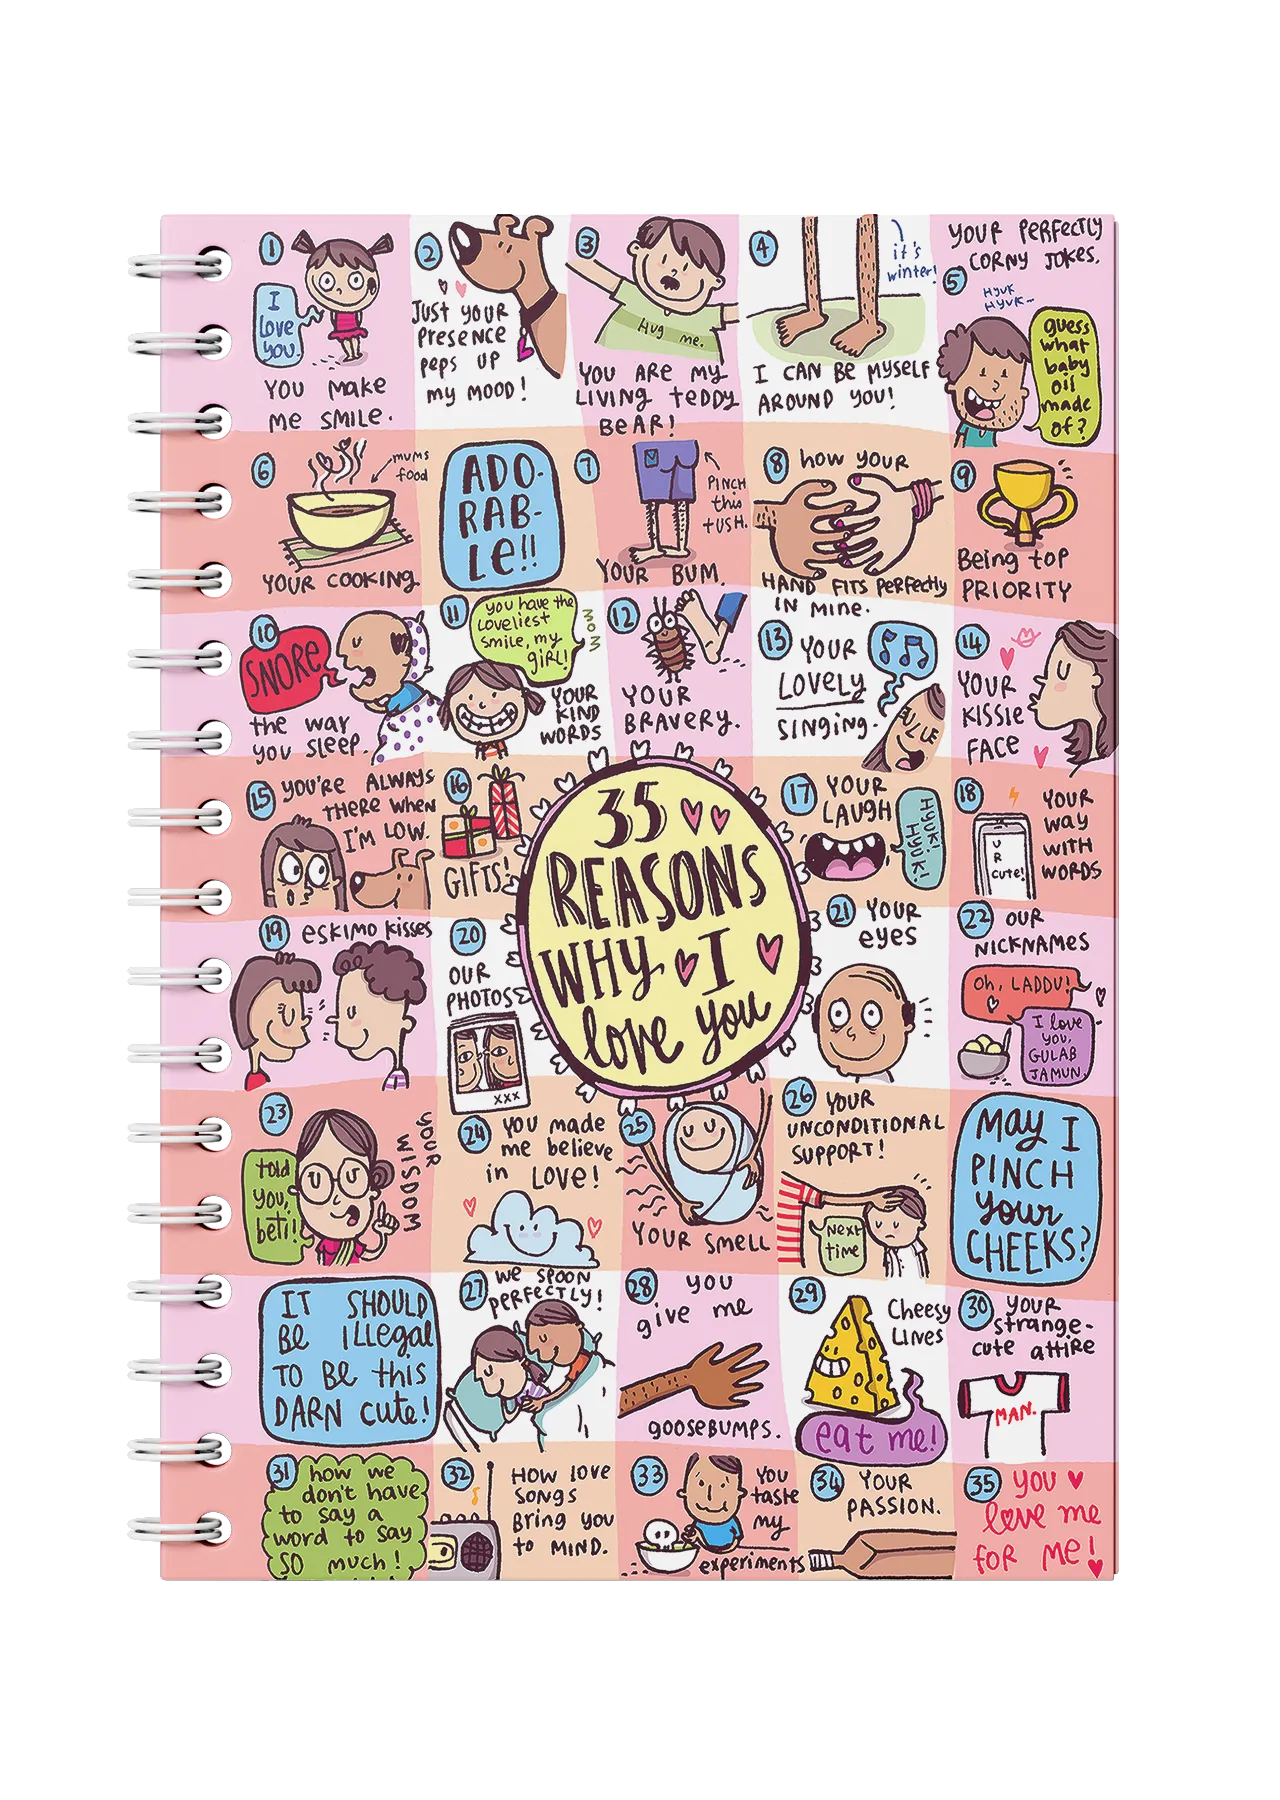 1
I
love
you.
YOU MAKE
ME SMILE.
2
JUST YOUR
PRESENCE
PEPS UP
MY MOOD!
3
Hug me.
YOU ARE MY
LIVING TEDDY
BEAR!
4
it's
winter!
I CAN BE MYSELF
AROUND YOU!
YOUR PERFECTLY
CORNY JOKES.
5
HYUK
HYUK~
guess
what
baby
oil
made
of?
6
mums
food
YOUR COOKING.
ADO-
RAB-
LE!!
7
PINCH
this
TUSH.
YOUR BUM.
8
how YOUR
HAND FITS PERFECTLY
IN MINE.
9
Being top
PRIORITY
10
SNORE
the way
you sleep.
11
you have the
loveliest
smile, my
giRL!
MOM
YOUR
KIND
WORDS
12
YOUR
BRAVERY.
13
YOUR
LOVELY
SINGING.
14
YOUR
KISSIE
FACE
15
YOU'RE ALWAYS
THERE WHEN
I'M LOW.
16
GIFTS!
35
REASONS
WHY I
love you
17
YOUR
LAUGH
Hyuk!
Hyuk!
18
U
R
cute!
YOUR
way
WITH
WORDS
19
eskimo kisses
20
OUR
PHOTOS
xxx
21
YOUR
eyes
22
OUR
NICKNAMES
Oh, LADDU!
I love
you,
GULAB
JAMUN.
23
told
you,
beti!
YOUR
WISDOM
24
YOU made
me believe
in LOVE!
25
YOUR SMELL
26
YOUR
UNCONDITIONAL
SUPPORT!
Next
time
MAY I
PINCH
your
CHEEKS?
IT SHOULD
BE ILLegal
TO BE this
DARN cute!
27
WE SPOON
PERFECTLY!
28
YOU
give me
goosebumps.
29
Cheesy
LINES
eat me!
30
YOUR
strange-
cute attire
MAN.
31
how we
don't have
to say a
word to say
SO much!
32
HOW love
SONGS
Bring you
to MIND.
33
YOU
taste
my
experiments
34
YOUR
PASSION.
35
YOU
love me
for me!